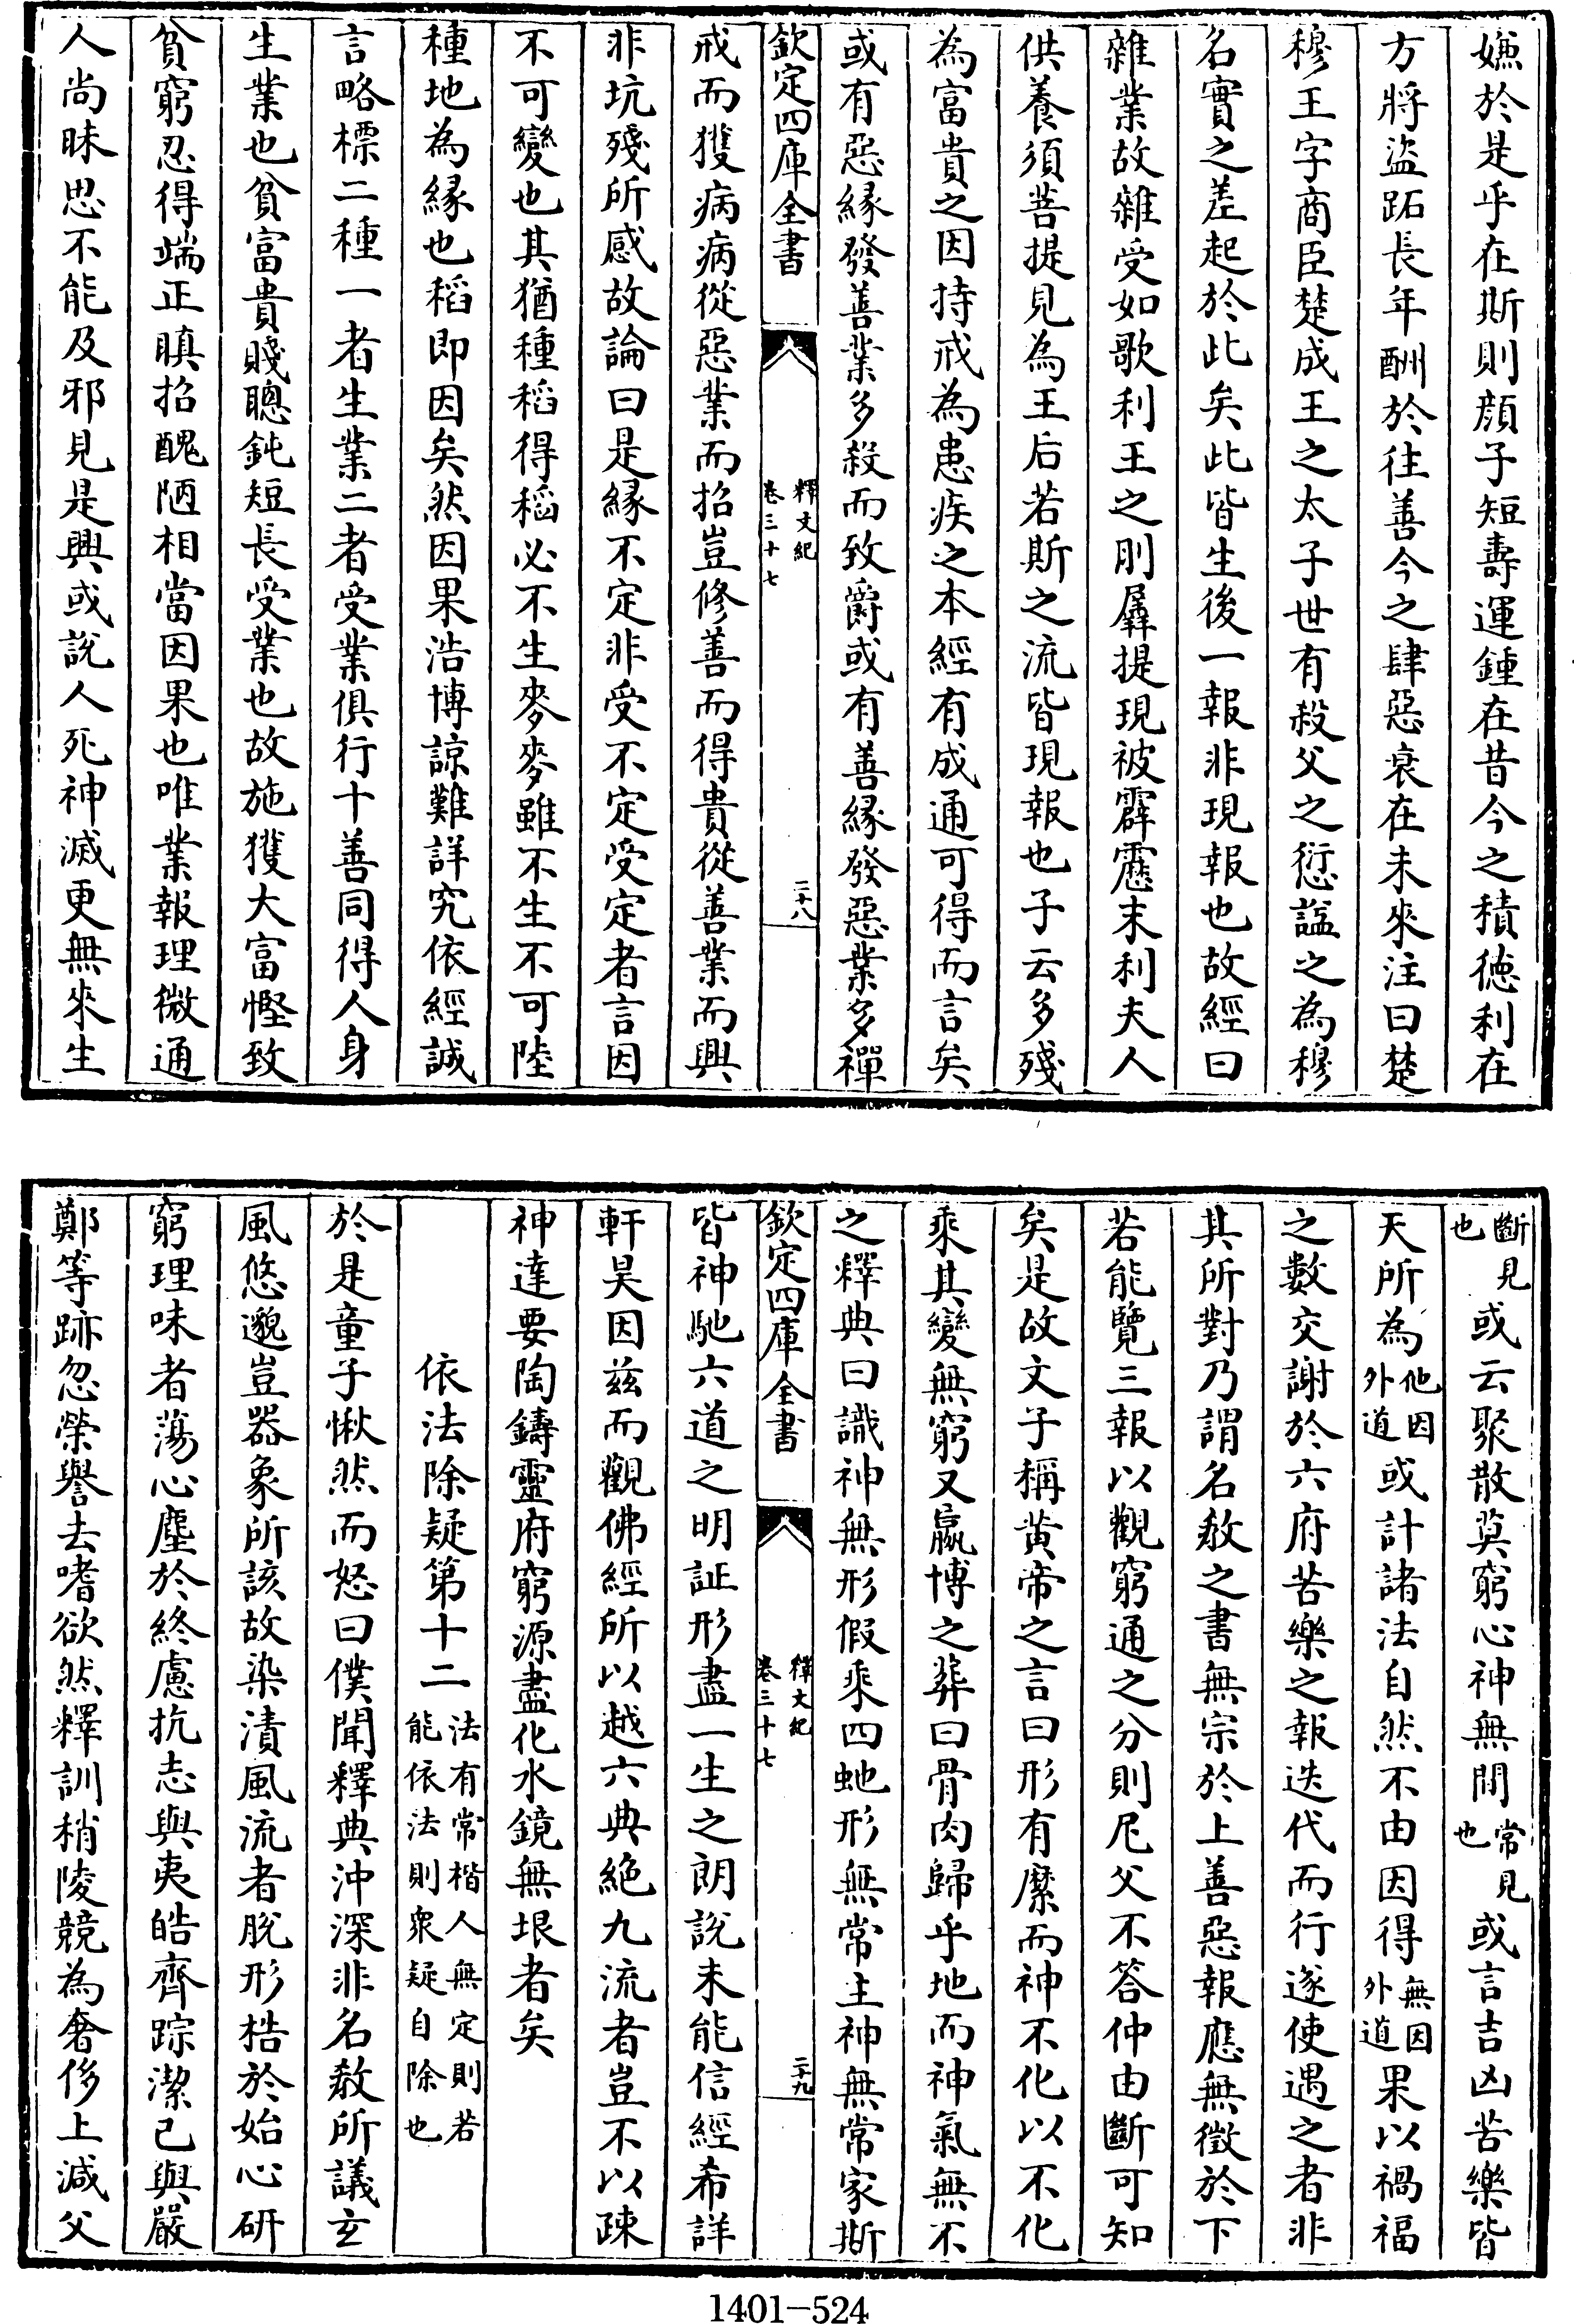 嫌於是乎在斯則顔子短壽運鍾在昔今之積徳利在
方將盜跖長年酬於往善今之肆惡衰在未來注曰楚
穆王字商臣楚成王之太子世有殺父之愆諡之為穆
名實之差起於此矣此皆生後一報非現報也故經曰
雜業故雜受如歌利王之刖羼提現被霹靂末利夫人
供養須菩提見為王后若斯之流皆現報也子云多殘
為富貴之因持戒為患疾之本經有成通可得而言矣
或有惡緣發善業多殺而致爵或有善緣發惡業多禪
欽定四庫全書
釋文紀
卷三十七
二十八
戒而獲病病從惡業而招豈修善而得貴從善業而興
非坑殘所感故論曰是緣不定非受不定受定者言因
不可變也其猶種稻得稻必不生麥麥雖不生不可陸
種地為緣也稻即因矣然因果浩博諒難詳究依經誠
言略標二種一者生業二者受業俱行十善同得人身
生業也貧富貴賤聰鈍短長受業也故施獲大富慳致
貧窮忍得端正瞋招醜陋相當因果也唯業報理微通
人尚昧思不能及邪見是興或說人死神滅更無來生
斷見也或云聚散莫窮心神無間常見也或言吉凶苦樂皆
天所為他因外道或計諸法自然不由因得無因外道果以禍福
之數交謝於六府苦樂之報迭代而行遂使遇之者非
其所對乃謂名敎之書無宗於上善惡報應無徵於下
若能覽三報以觀窮通之分則尼父不答仲由斷可知
矣是故文子稱黄帝之言曰形有縻而神不化以不化
乘其變無窮又嬴博之葬曰骨肉歸乎地而神氣無不
之釋典曰識神無形假乘四虵形無常主神無常家斯
欽定四庫全書
釋文紀
卷三十七
二十九
皆神馳六道之明証形盡一生之朗說未能信經希詳
軒昊因兹而觀佛經所以越六典絶九流者豈不以疎
神達要陶鑄靈府窮源盡化水鏡無垠者矣
依法除疑第十二法有常楷人無定則若能依法則衆疑自除也
於是童子愀然而怒曰僕聞釋典沖深非名敎所議玄
風悠邈豈器象所該故染漬風流者脫形梏於始心研
窮理味者蕩心塵於終慮抗志與夷皓齊踪潔已與嚴
鄭等跡忽榮譽去嗜欲然釋訓稍陵競為奢侈上減父
1401-524